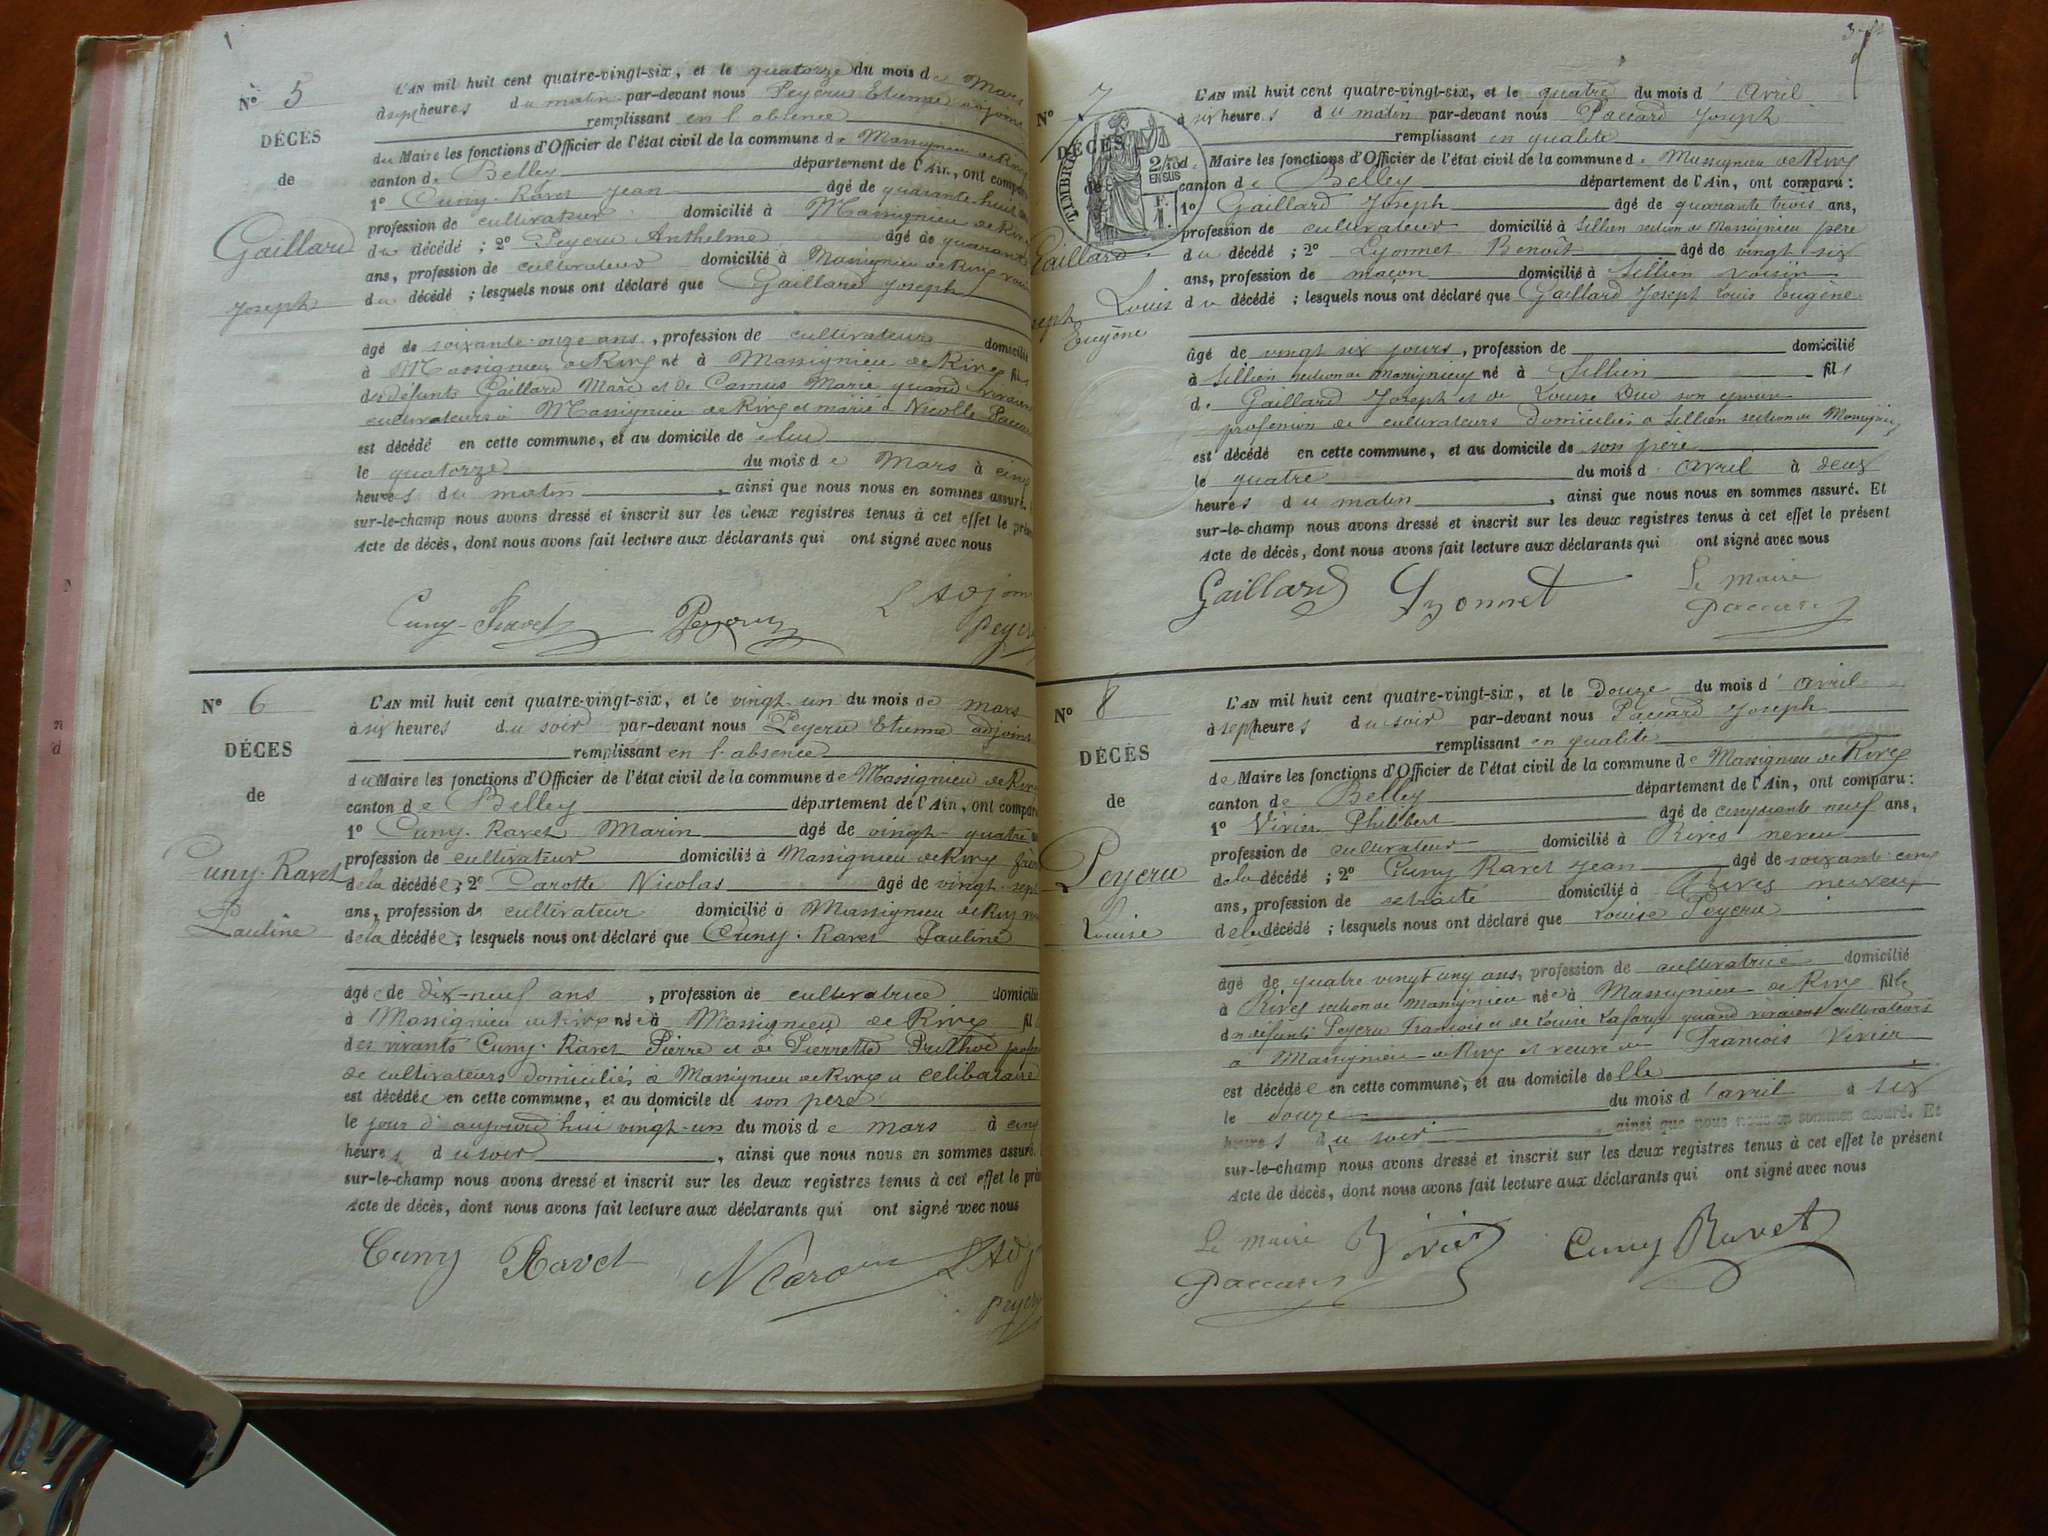 N° 5
DÉCÈS
de
Gaillard
Joseph
L'AN mil huit cent quatre-vingt-six, et le quatorze du mois de Mars
à sept heures du matin par-devant nous Peycru Etienne adjoint
remplissant en l'absence
du Maire les fonctions d'Officier de l'état civil de la commune de Massignieu de Rives
canton de Belley département de l'Ain, ont comparu
1° Cuny-Ravet Jean âgé de quarante-huit
profession de cultivateur domicilié à Massignieu de Rives
du décédé ; 2° Peycru Anthelme âgé de quarante
ans, profession de cultivateur domicilié à Massignieu de Rives voisin
du décédé ; lesquels nous ont déclaré que Gaillard Joseph
âgé de soixante-onze ans, profession de cultivateur domicilié
à Massignieu de Rives né à Massignieu de Rives fils
des défunts Gaillard Marc et de Camus Marie quand vivaient
cultivateurs à Massignieu de Rives et marié à Nicolle Paccard
est décédé en cette commune, et au domicile de elui
le quatorze du mois de Mars à cinq
heures du matin, ainsi que nous nous en sommes assuré.
sur-le-champ nous avons dressé et inscrit sur les deux registres tenus à cet effet le prés
Acte de décès, dont nous avons fait lecture aux déclarants qui ont signé avec nous
Cuny-Ravet Peycru L'Adjoin
Peycru
N° 6
DÉCES
de
Cuny-Ravet
Pauline
L'AN mil huit cent quatre-vingt-six, et le vingt-un du mois de mars
à six heures du soir par-devant nous Peycru Etienne adjoint
remplissant en l'absence
du Maire les fonctions d'Officier de l'état civil de la commune de Massignieu de Rives
canton de Belley département de l'Ain, ont comparu
1° Cuny-Ravet Marin âgé de vingt-quatre
profession de cultivateur domicilié à Massignieu de Rives frère
de la décédée ; 2° Carotte Nicolas âgé de vingt-sept
ans, profession de cultivateur domicilié à Massignieu de Rives
de la décédée ; lesquels nous ont déclaré que Cuny-Ravet Pauline
âgée de dix-neuf ans, profession de cultivatrice domicilié
à Massignieu de Rives née à Massignieu de Rives fil
des vivants Cuny-Ravet Pierre et de Pierrette Pruthod profes
de cultivateurs domiciliés à Massignieu de Rives et celibataire
est décédée en cette commune, et au domicile de son père
le jour d'aujourd'hui vingt-un du mois de mars à cinq
heures du soir, ainsi que nous nous en sommes assuré.
sur-le-champ nous avons dressé et inscrit sur les deux registres tenus à cet effet le prés
Acte de décès, dont nous avons fait lecture aux déclarants qui ont signé avec nous
Cuny Ravet N Caro L'Adj
Peycru
N° 7
DÉCÈS
de
TIMBRE
2/10
EN SUS
F.
1.
Gaillard
Joseph Louis
Eugène
L'AN mil huit cent quatre-vingt-six, et le quatre du mois d'Avril
à six heures du matin par-devant nous Paccard Joseph
remplissant en qualité
de Maire les fonctions d'Officier de l'état civil de la commune de Massignieu de Rives
canton de Belley département de l'Ain, ont comparu :
1° Gaillard Joseph âgé de quarante trois ans,
profession de cultivateur domicilié à Sillien section de Massignieu père
du décédé ; 2° Lyonnet Benoît âgé de vingt six
ans, profession de maçon domicilié à Sillien voisin
du décédé ; lesquels nous ont déclaré que Gaillard Joseph Louis Eugène
âgé de vingt six jours, profession de domicilié
à Sillien section de Massignieu né à Sillien fils
de Gaillard Joseph et de Louise Duc son épouse
profession de cultivateurs domiciliés à Sillien section de Massignieu
est décédé en cette commune, et au domicile de son père
le quatre du mois d'avril à deux
heures du matin, ainsi que nous nous en sommes assuré. Et
sur-le-champ nous avons dressé et inscrit sur les deux registres tenus à cet effet le présent
Acte de décès, dont nous avons fait lecture aux déclarants qui ont signé avec nous
Gaillard Lyonnet Le Maire
Paccard
N° 8
DÉCÈS
de
Peycru
Louise
L'AN mil huit cent quatre-vingt-six, et le Douze du mois d'avril
à sept heures du soir par-devant nous Paccard Joseph
remplissant en qualité
de Maire les fonctions d'Officier de l'état civil de la commune de Massignieu de Rives
canton de Belley département de l'Ain, ont comparu :
1° Vivier Philibert âgé de cinquante neuf ans,
profession de cultivateur domicilié à Rives neveu
de la décédé ; 2° Cuny Ravet Jean âgé de soixante cinq
ans, profession de retraité domicilié à Rives neuveu
de la décédé ; lesquels nous ont déclaré que Louise Peycru
âgé de quatre vingt cinq ans, profession de cultivatrice domicilié
à Rives section de Massignieu née à Massignieu de Rives fille
des défunts Peycru François et de Louise Lafarge quand vivaient cultivateurs
à Massignieu de Rives et veuve de François Vivier
est décédée en cette commune, et au domicile delle
le douze du mois d'avril à six
heures du soir, ainsi que nous nous en sommes assuré. Et
sur-le-champ nous avons dressé et inscrit sur les deux registres tenus à cet effet le présent
Acte de décès, dont nous avons fait lecture aux déclarants qui ont signé avec nous
Le Maire Vivier Cuny Ravet
Paccard